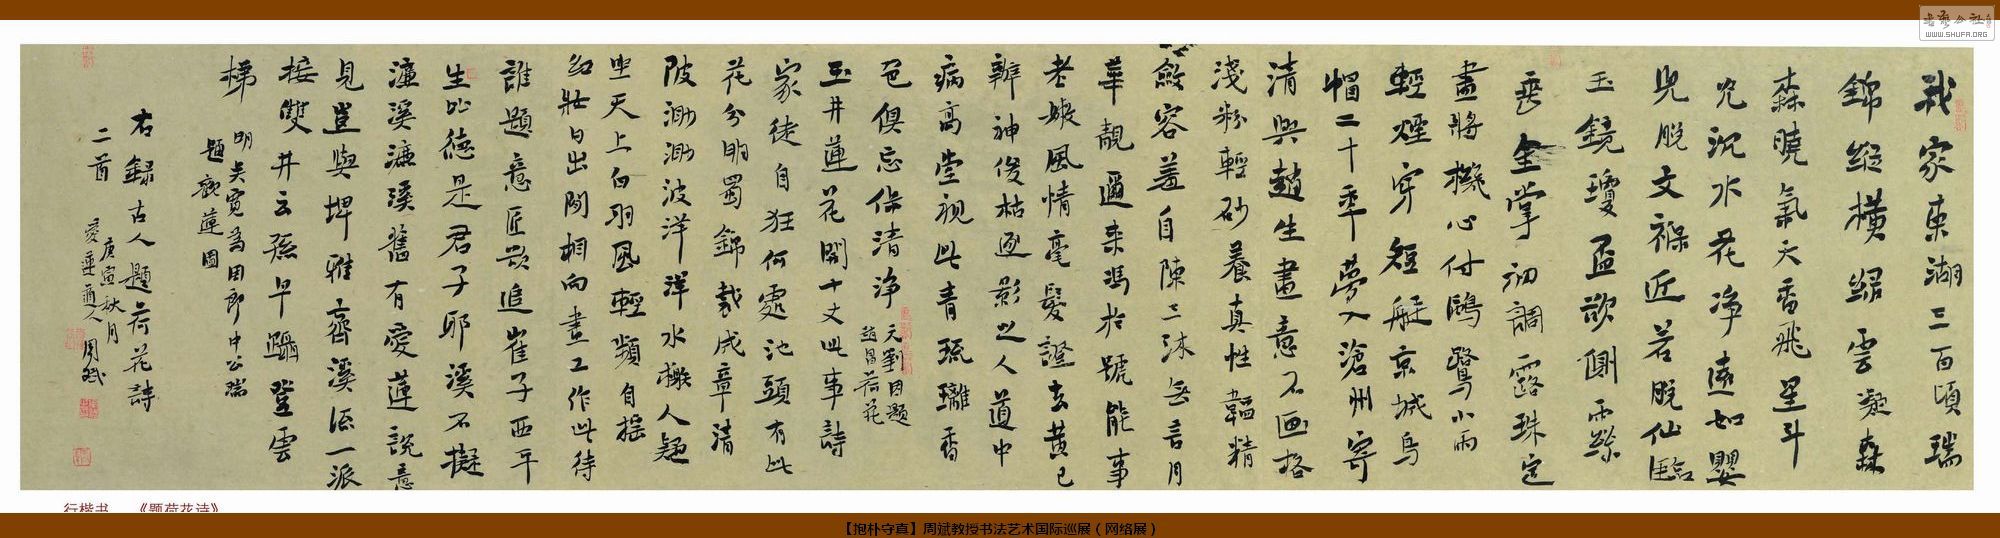 我家東湖三百頃瑞
錦縱橫繝雲凝森
森曉氣天香飛星斗
光沉水花净遠如嬰
兒脫文褓近若脫仙
玉鏡瓊盃欲側雨絲
垂金掌初調露珠定
畫將機心付鷗鷺小雨
輕煙穿短艇京城烏
帽二十年夢入滄州寄
清興趙生畫意不画格
淺粉輕砂養真性韞精
斂容羞自陳三沐無言月
華靚邇来馮於號能事
老嫩風情毫髮證玄黄已
辨神俊枯逐影之人道中
病高堂視此青琉璃香
色俱忘作清净
元劉因題
趙昌荷花
玉井蓮花開十丈此事詩
家徒自狂何處池頭有此
花分明蜀錦裁成章清
陂渺渺波洋洋水檝人疑
坐天上白羽風輕頻自摇
紅妝日出閙相向畫工作此待
誰題意匠欲追崔子西平
生比德是君子耶溪不擬
濂溪濂溪舊有愛蓮說意
見豈與埤雅齊溪流一派
接雙井云孫早躡登雲
梯
明吳寬為周郎中公瑞
題蓮圖
右録古人題荷花詩
二首
庚寅秋月
愛蓮適人周斌
書法公社
WWW.SHUFA.ORG
行楷书 《题荷花诗》
【抱朴守真】周斌教授书法艺术国际巡展（网络展）